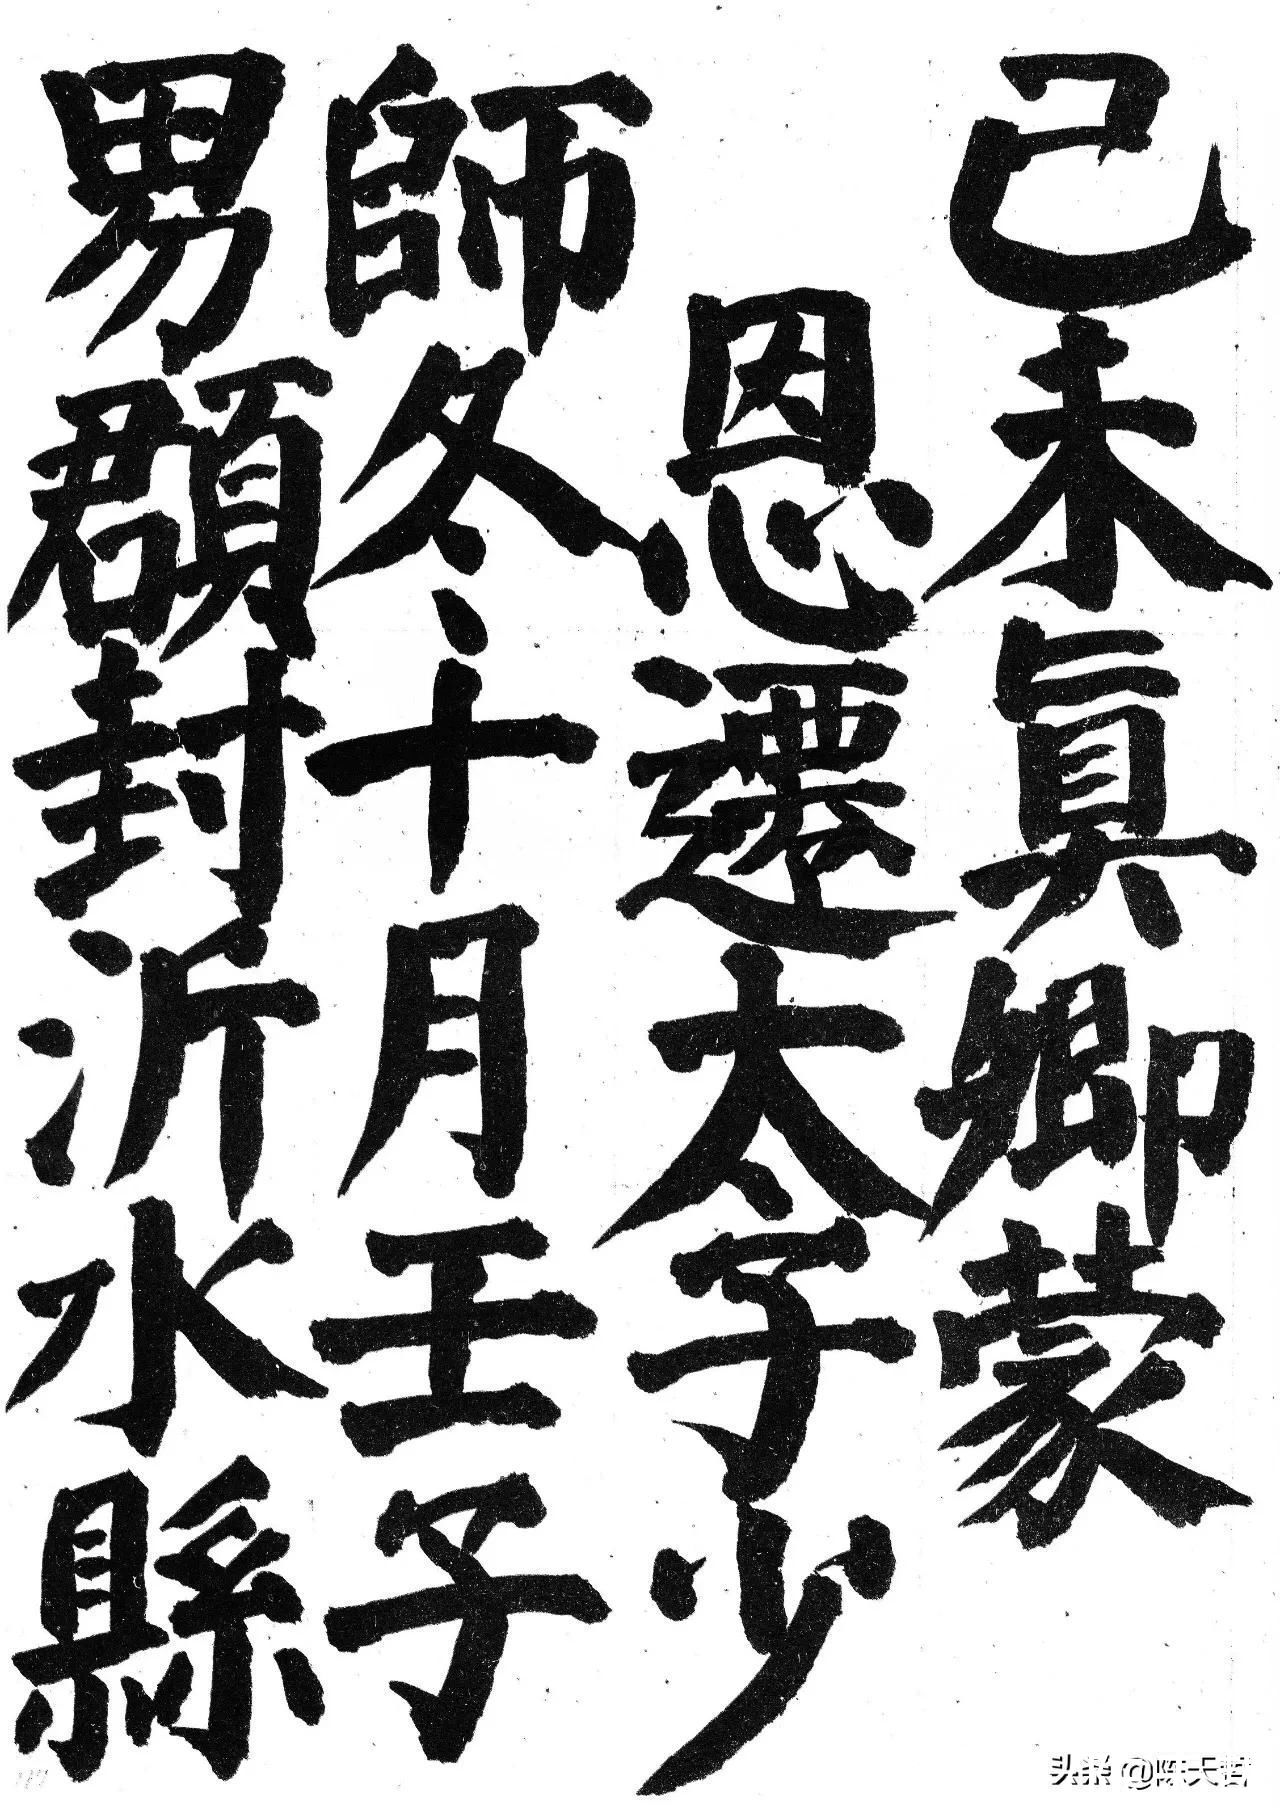 己未真卿蒙
恩遷太子少
師冬十月壬子
男頵封沂水縣
头条 @陈天哲